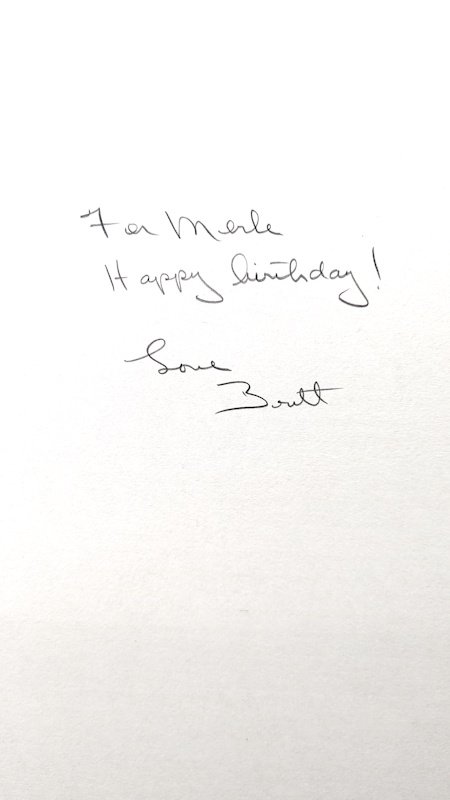 For Merle
Happy birthday!
Love
Brett